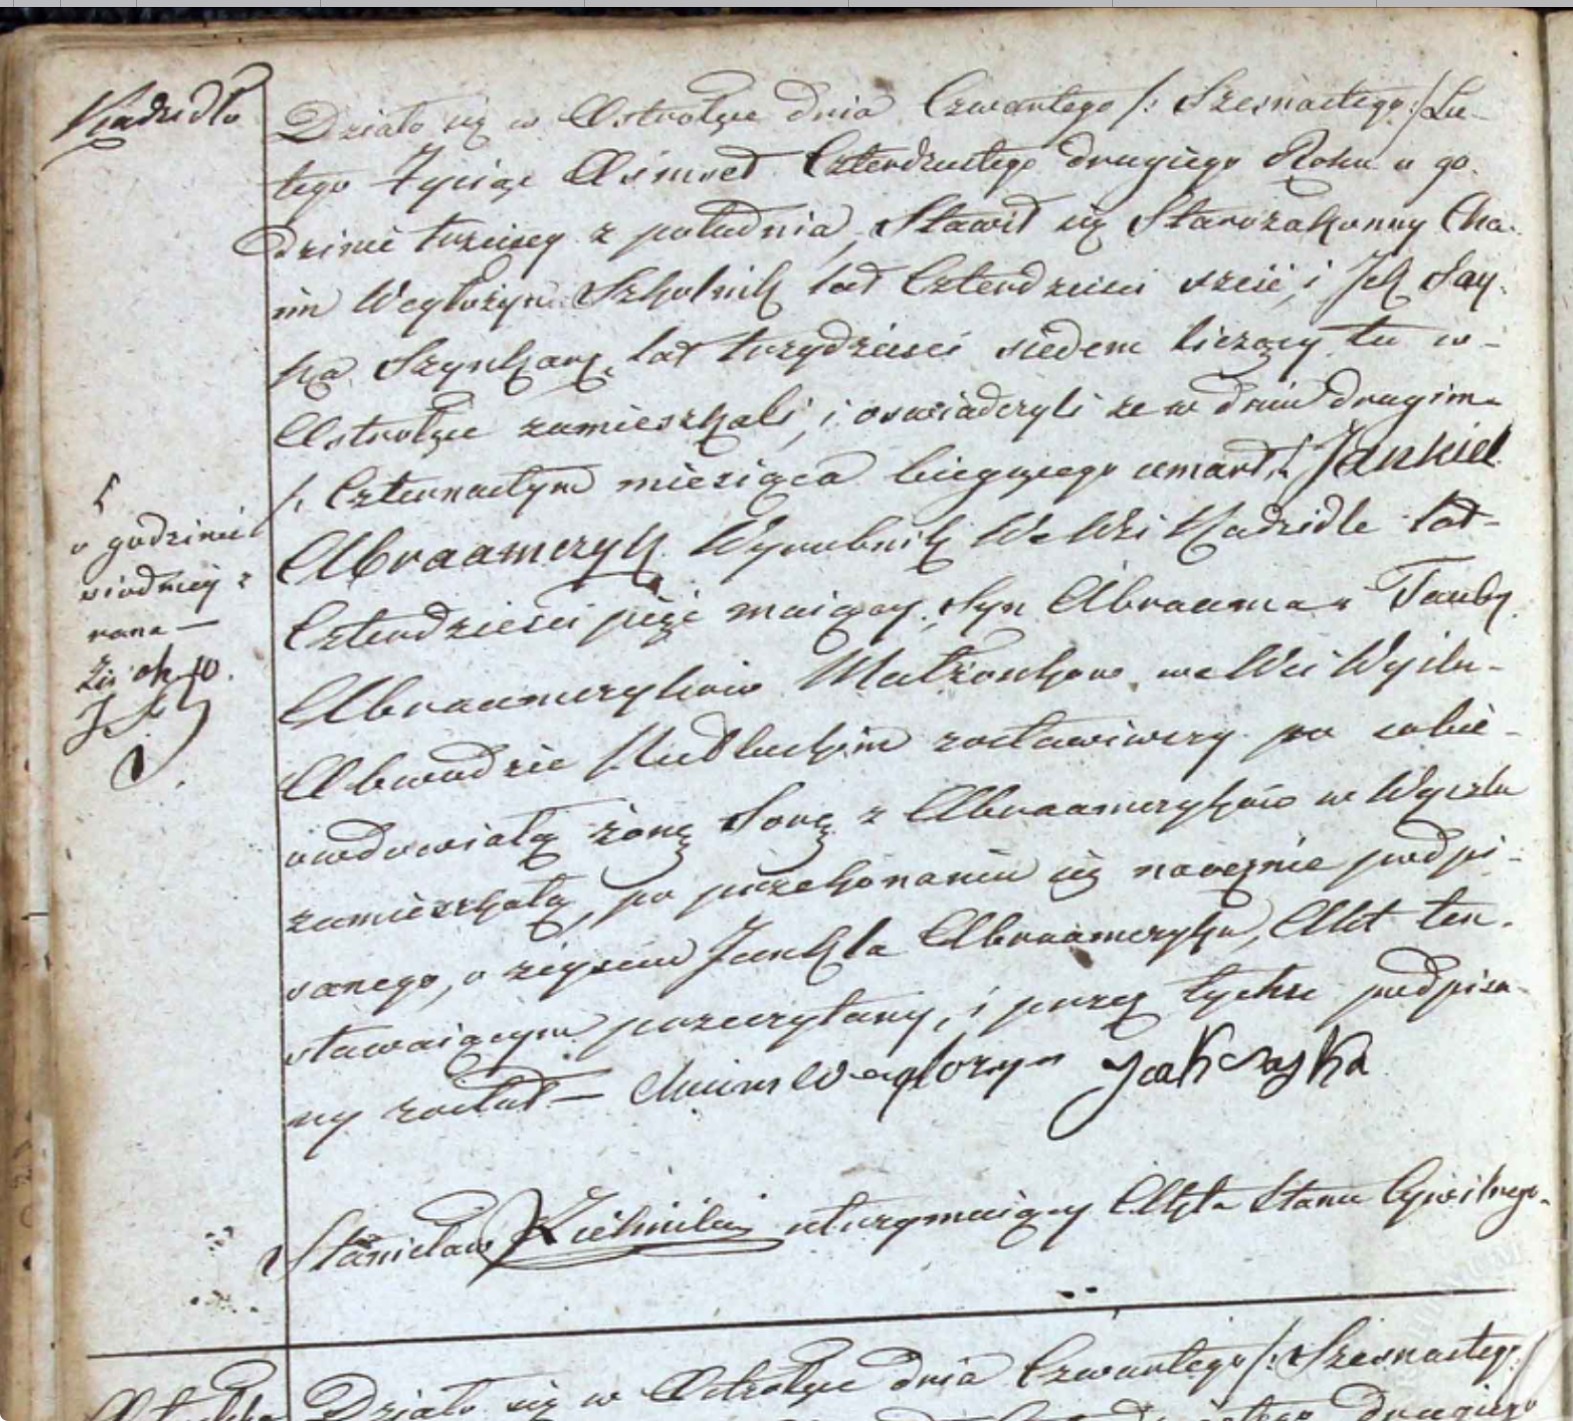 Kadzidło
Działo się w Ostrołęce dnia Czwartego /: Szesnastego :/ Lu-
tego Tysiąc Osmset Czterdziestego drugiego Roku o go-
dzinie trzeciey z południa, Stawił się Starozakonny Cha-
im Węgłożyn Szkolnik lat Czterdzieści sześć, i Jek Say-
ka Szynkarz lat trzydzieści siedem liczący tu w
Ostrołęce zamieszkali, i oswiadczyli że w dniu drugim
/: Czternastym miesiąca bieżącego umarł Jankiel
Abraamczyk Wyrobnik We Wsi Kadzidle lat
Czterdzieści pięć maiący, Syn Abraama i Tauby
Abraamczyków Małżonków we Wsi
Obwodzie zostawiwszy po sobie
owdowiałą żonę Sorę z Abraamczyków w
zamieszkałą, po przekonaniu się naocznie podpi-
sanego, o zejściu Jankla Abraamczyka, Akt ten
stawaiącym przeczytany, i przez tychże podpisa-
ny został — Chaim Węglorzyn Jak Sayka
Stanisław utrzymuiący Akta Stanu Cywilnego
o godzinie
siodmey z
rana —
Działo się w Ostrołęce dnia Czwartego /: Szesnastego
drugiego